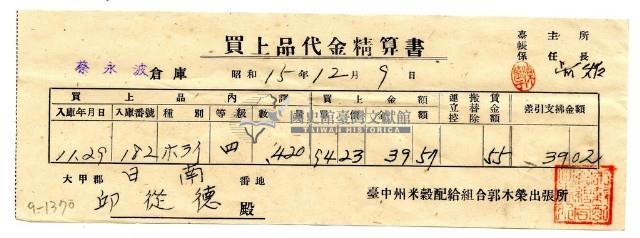 主任
所長
臺帳係
買上品代金精算書
蔡永波倉庫 昭和15年12月9日
買上品內譯 買上金額 運搬賃立替控除金額 差引支拂金額
入庫年月日 入庫番號 種別 等級 數量 單價 金額
11.29 182 ホライ 四 .420 9423 39.57 55 39.02
大甲郡 日南 番地
邱從德殿
臺中州米穀配給組合郭木榮出張所
9-1370
國史館臺灣文獻館
TAIWAN HISTORICA